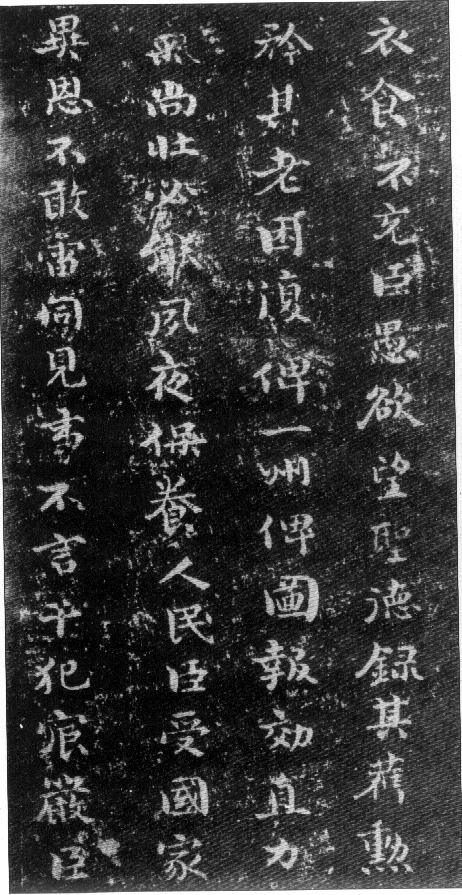 衣食不充臣愚欲望聖德録其舊勳
矜其老困復俾一州俾圖報效直力
氣尚壯必能夙夜保養人民臣受國家
異恩不敢雷同見事不言干犯宸嚴臣